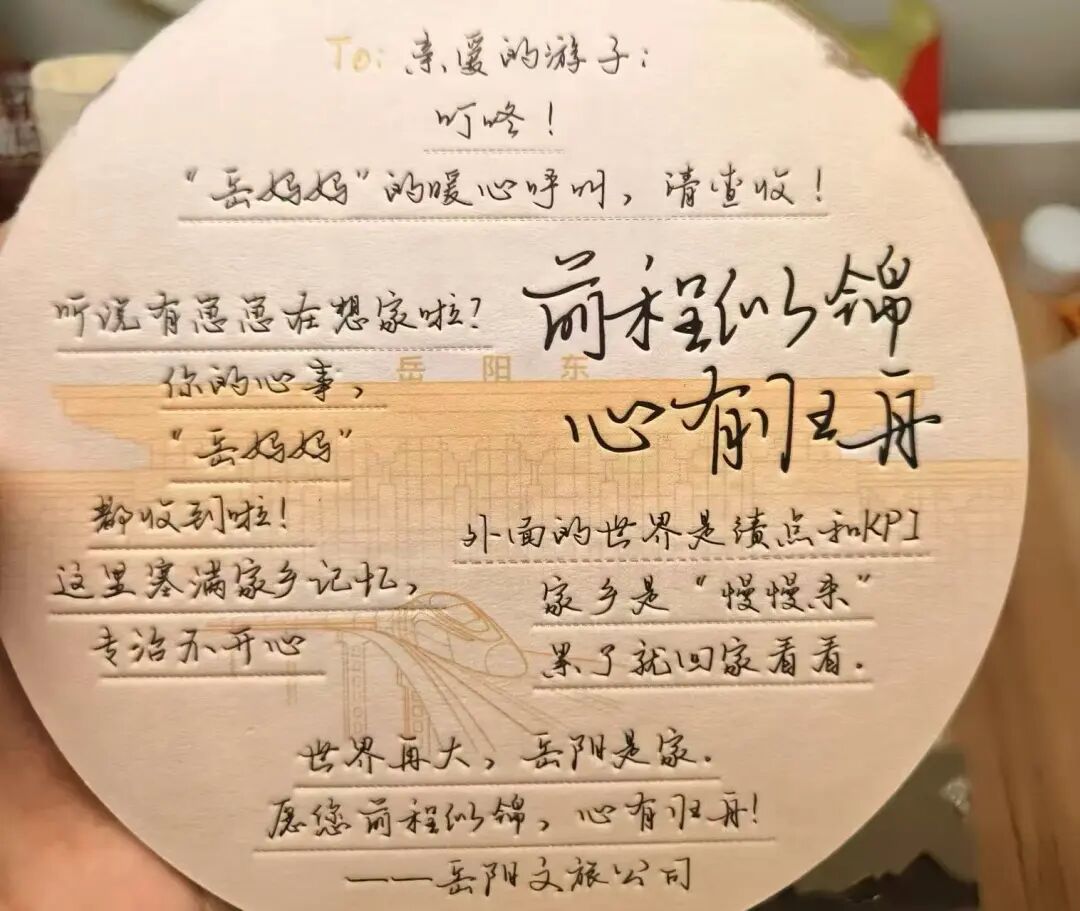 To: 亲爱的游子:
叮咚!
"岳妈妈"的暖心呼叫,请查收!
听说有崽崽在想家啦?
你的心事,
"岳妈妈"
都收到啦!
这里塞满家乡记忆,
专治不开心
前程似锦
心有归舟
岳阳东
外面的世界是绩点和KPI
家乡是"慢慢来"
累了就回家看看.
世界再大,岳阳是家.
愿您前程似锦,心有归舟!
——岳阳文旅公司